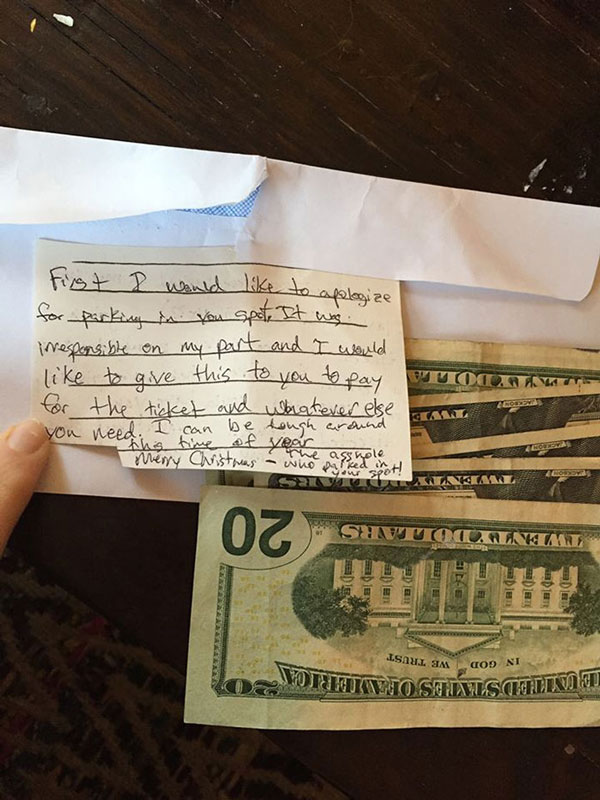 First I would like to apologize
for parking in you spot. It was
irresponsible on my part and I would
like to give this to you to pay
for the ticket and whatever else
you need. I can be tough around
this time of year
Merry Christmas - The asshole
who parked in
your spot!
DOLLARS
JACKSON
JACKSON
JACKSON
20
TWENTY DOLLARS
IN GOD WE TRUST
UNITED STATES OF AMERICA
20